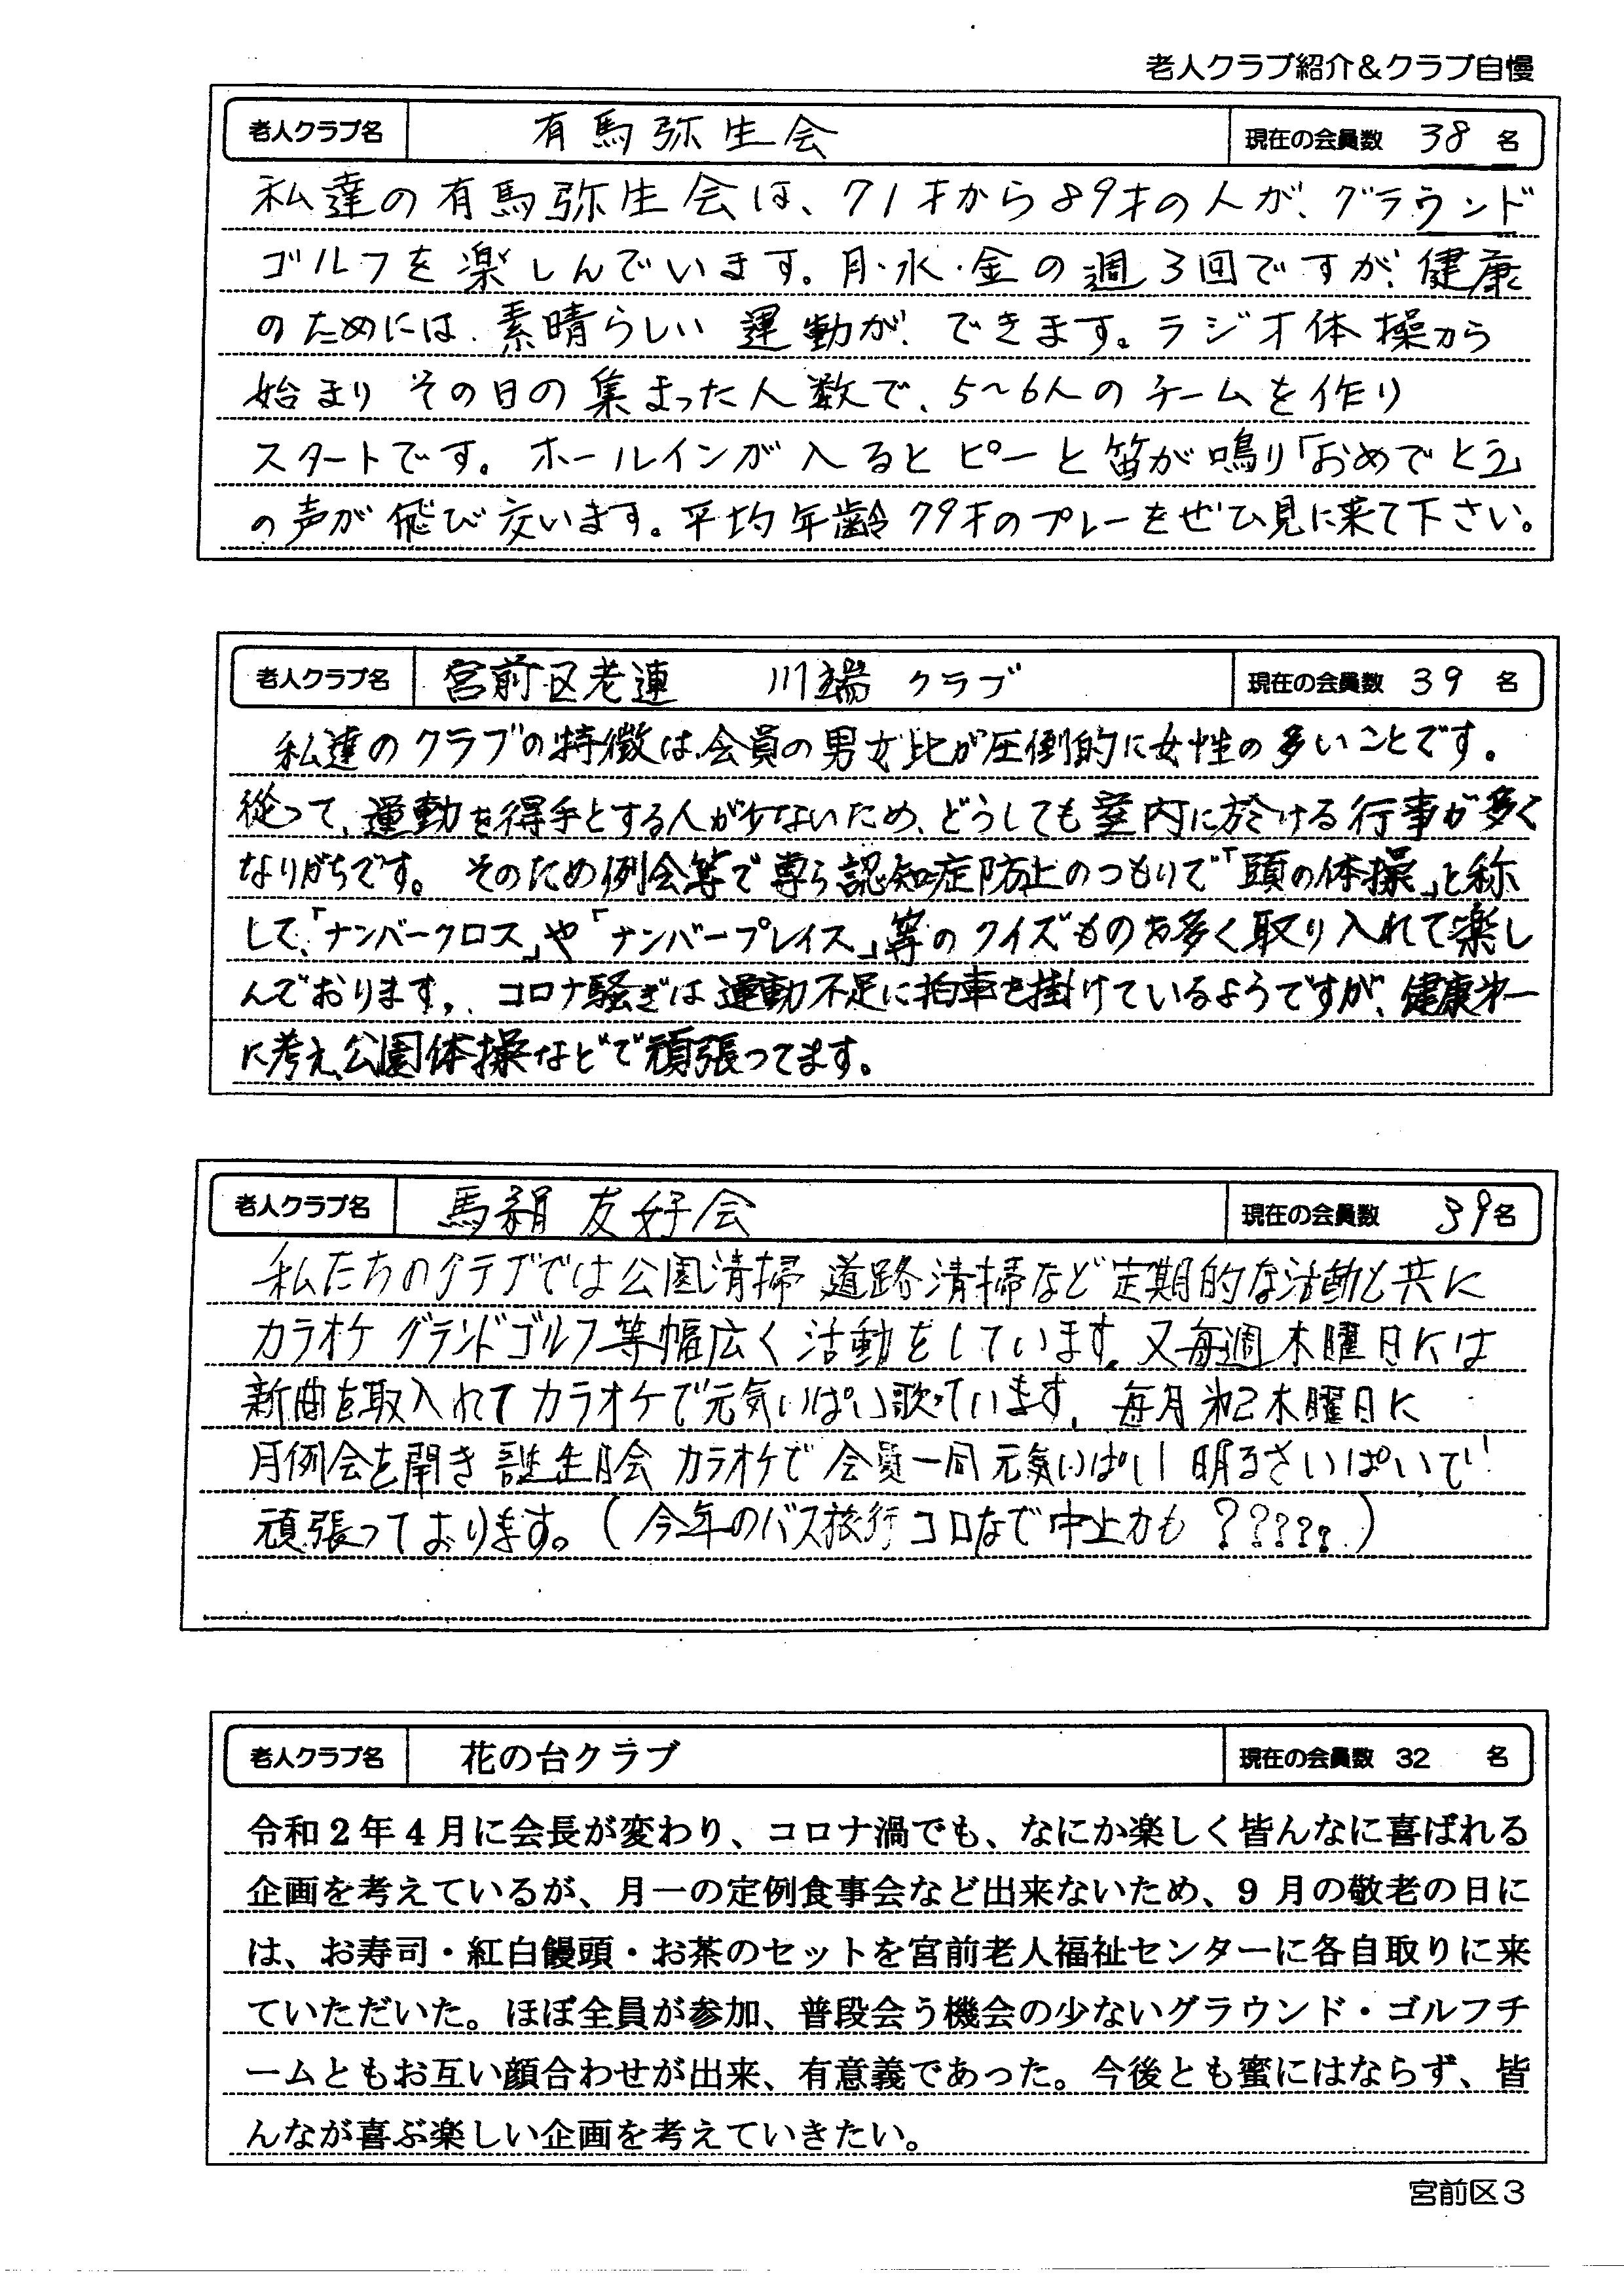 老人クラブ紹介&クラブ自慢
老人クラブ名 有馬弥生会 現在の会員数 38 名
私達の有馬弥生会は、71才から89才の人が、グラウンド
ゴルフを楽しんでいます。月・水・金の週3回ですが、健康
のためには、素晴らしい運動が、できます。ラジオ体操から
始まり その日の集まった人数で、5〜6人のチームを作り
スタートです。ホールインが入るとピーと笛が鳴り「おめでとう」
の声が飛び交います。平均年齢79才のプレーをぜひ見に来て下さい。
老人クラブ名 宮前区老連 川端クラブ 現在の会員数 39 名
私達のクラブの特徴は、会員の男女比が圧倒的に女性の多いことです。
従って、運動を得手とする人が少ないため、どうしても室内に於ける行事が多く
なりがちです。そのため例会等で専ら認知症防止のつもりで「頭の体操」と称
して、「ナンバークロス」や「ナンバープレイス」等のクイズものを多く取り入れて楽し
んでおります。コロナ騒ぎは運動不足に拍車を掛けているようですが、健康第一
に考え、公園体操などで頑張ってます。
老人クラブ名 馬絹友好会 現在の会員数 39名
私たちのクラブでは公園清掃 道路清掃など定期的な活動と共に
カラオケ グランドゴルフ等幅広く活動をしています。又毎週木曜日には
新曲を取入れてカラオケで元気いぱい歌ています。毎月第2木曜日に
月例会を開き誕生日会 カラオケで会員一同元気いぱい 明るさいぱいで
頑張っております。(今年のバス旅行コロなで中止カも?????)
老人クラブ名 花の台クラブ 現在の会員数 32 名
令和2年4月に会長が変わり、コロナ渦でも、なにか楽しく皆んなに喜ばれる
企画を考えているが、月一の定例食事会など出来ないため、9月の敬老の日に
は、お寿司・紅白饅頭・お茶のセットを宮前老人福祉センターに各自取りに来
ていただいた。ほぼ全員が参加、普段会う機会の少ないグラウンド・ゴルフチ
ームともお互い顔合わせが出来、有意義であった。今後とも蜜にはならず、皆
んなが喜ぶ楽しい企画を考えていきたい。
宮前区3